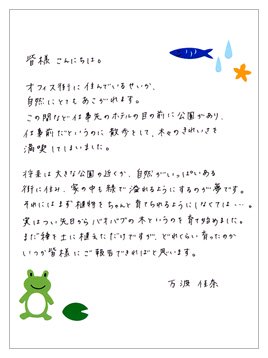 皆様 こんにちは。
オフィス街に住んでいるせいか、
自然にとてもあこがれます。
この間など仕事先のホテルの目の前に公園があり、
仕事前だというのに散歩をして、木々のきれいさを
満喫してしまいました。
将来は大きな公園の近くか、自然がいっぱいある
街に住み、家の中も緑で溢れるようにするのが夢です。
それにはまず植物をちゃんと育てられるようにしなくては…。
実はつい先日からバオバブの木というのを育て始めました。
まだ種を土に植えただけですが、どれくらい育ったか
いつか皆様にご報告できればと思います。
万源 佳奈